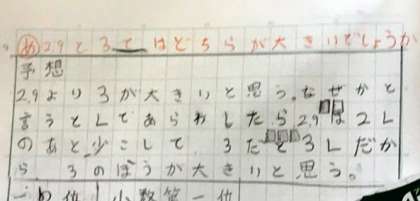 め 2.9と3ではどちらが大きいでしょうか
予想
2.9より3が大きいと思う。なぜかと
言うとLであらわしたら2.9は2L
のあと少こして 3だと3Lだか
ら、3のほうが大きいと思う。
一の位 小数第一位